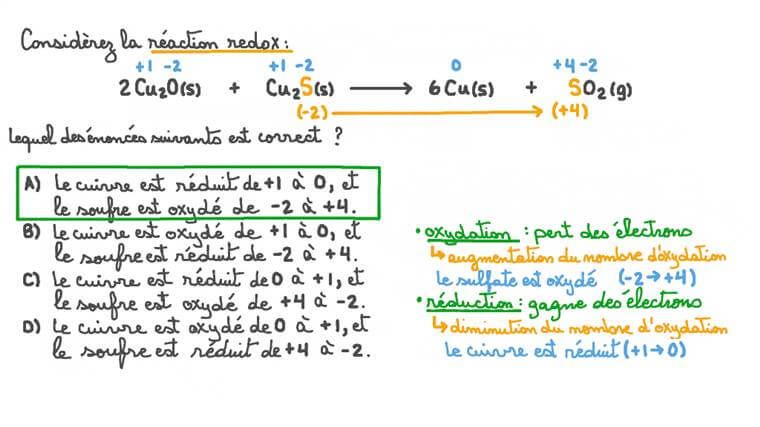 Considèrez la réaction redox :
+1 -2 +1 -2 0 +4 -2
2Cu₂O(s) + Cu₂S(s) ⟶ 6Cu(s) + SO₂(g)
(-2) ⟶ (+4)
Lequel des énoncés suivants est correct ?
A) Le cuivre est réduit de +1 à 0, et
le soufre est oxydé de -2 à +4.
B) Le cuivre est oxydé de +1 à 0, et
le soufre est réduit de -2 à +4.
C) Le cuivre est réduit de 0 à +1, et
le soufre est oxydé de +4 à -2.
D) Le cuivre est oxydé de 0 à +1, et
le soufre est réduit de +4 à -2.
• oxydation : pert des électrons
↳ augmentation du nombre d'oxydation
le sulfate est oxydé (-2→+4)
• réduction : gagne des électrons
↳ diminution du nombre d'oxydation
le cuivre est réduit (+1→0)